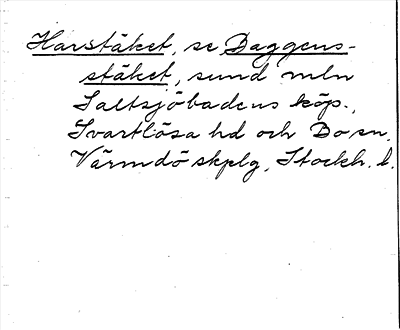 Harstäket, se Baggens-
stäket, sund mln
Saltsjöbadens köp.,
Svartlösa hd och Bo sn,
Värmdö skplg, Stockh. l.